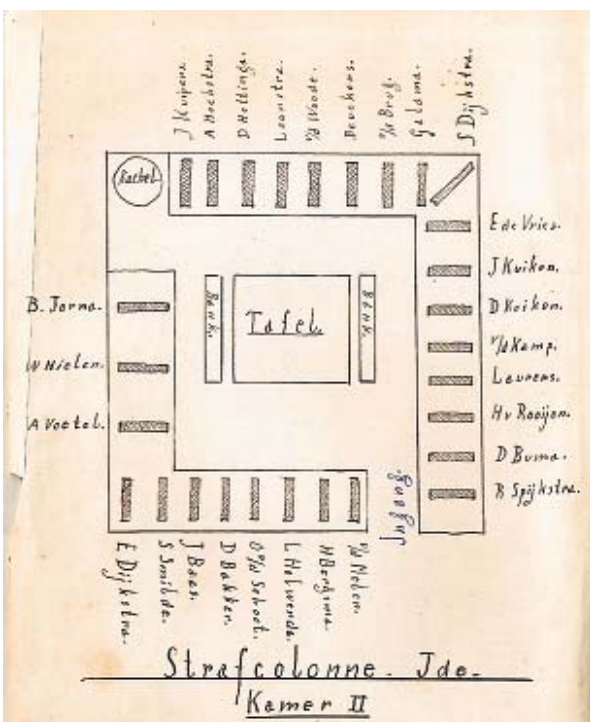 J Kuipers.
A Hoekstra.
D Hettinga.
Leenstra.
v/d Woude.
Beuckens.
v/d Brug.
Galama.
S Dijkstra.
Kachel
E de Vries.
J Kuiken.
D Kuiken.
v/d Kamp.
Laurens.
H v Rooijen.
D Buma.
R Spijkstra.
B. Jorna.
W Nielen.
A Voetel.
Bank.
Tafel.
Bank.
Ingang.
E Dijkstra.
S Smilde.
J Baas.
D Bakker.
v/d Schoot.
L Helwenda.
H Bergsma.
v/d Molen.
Strafcolonne. Jde.
Kamer II